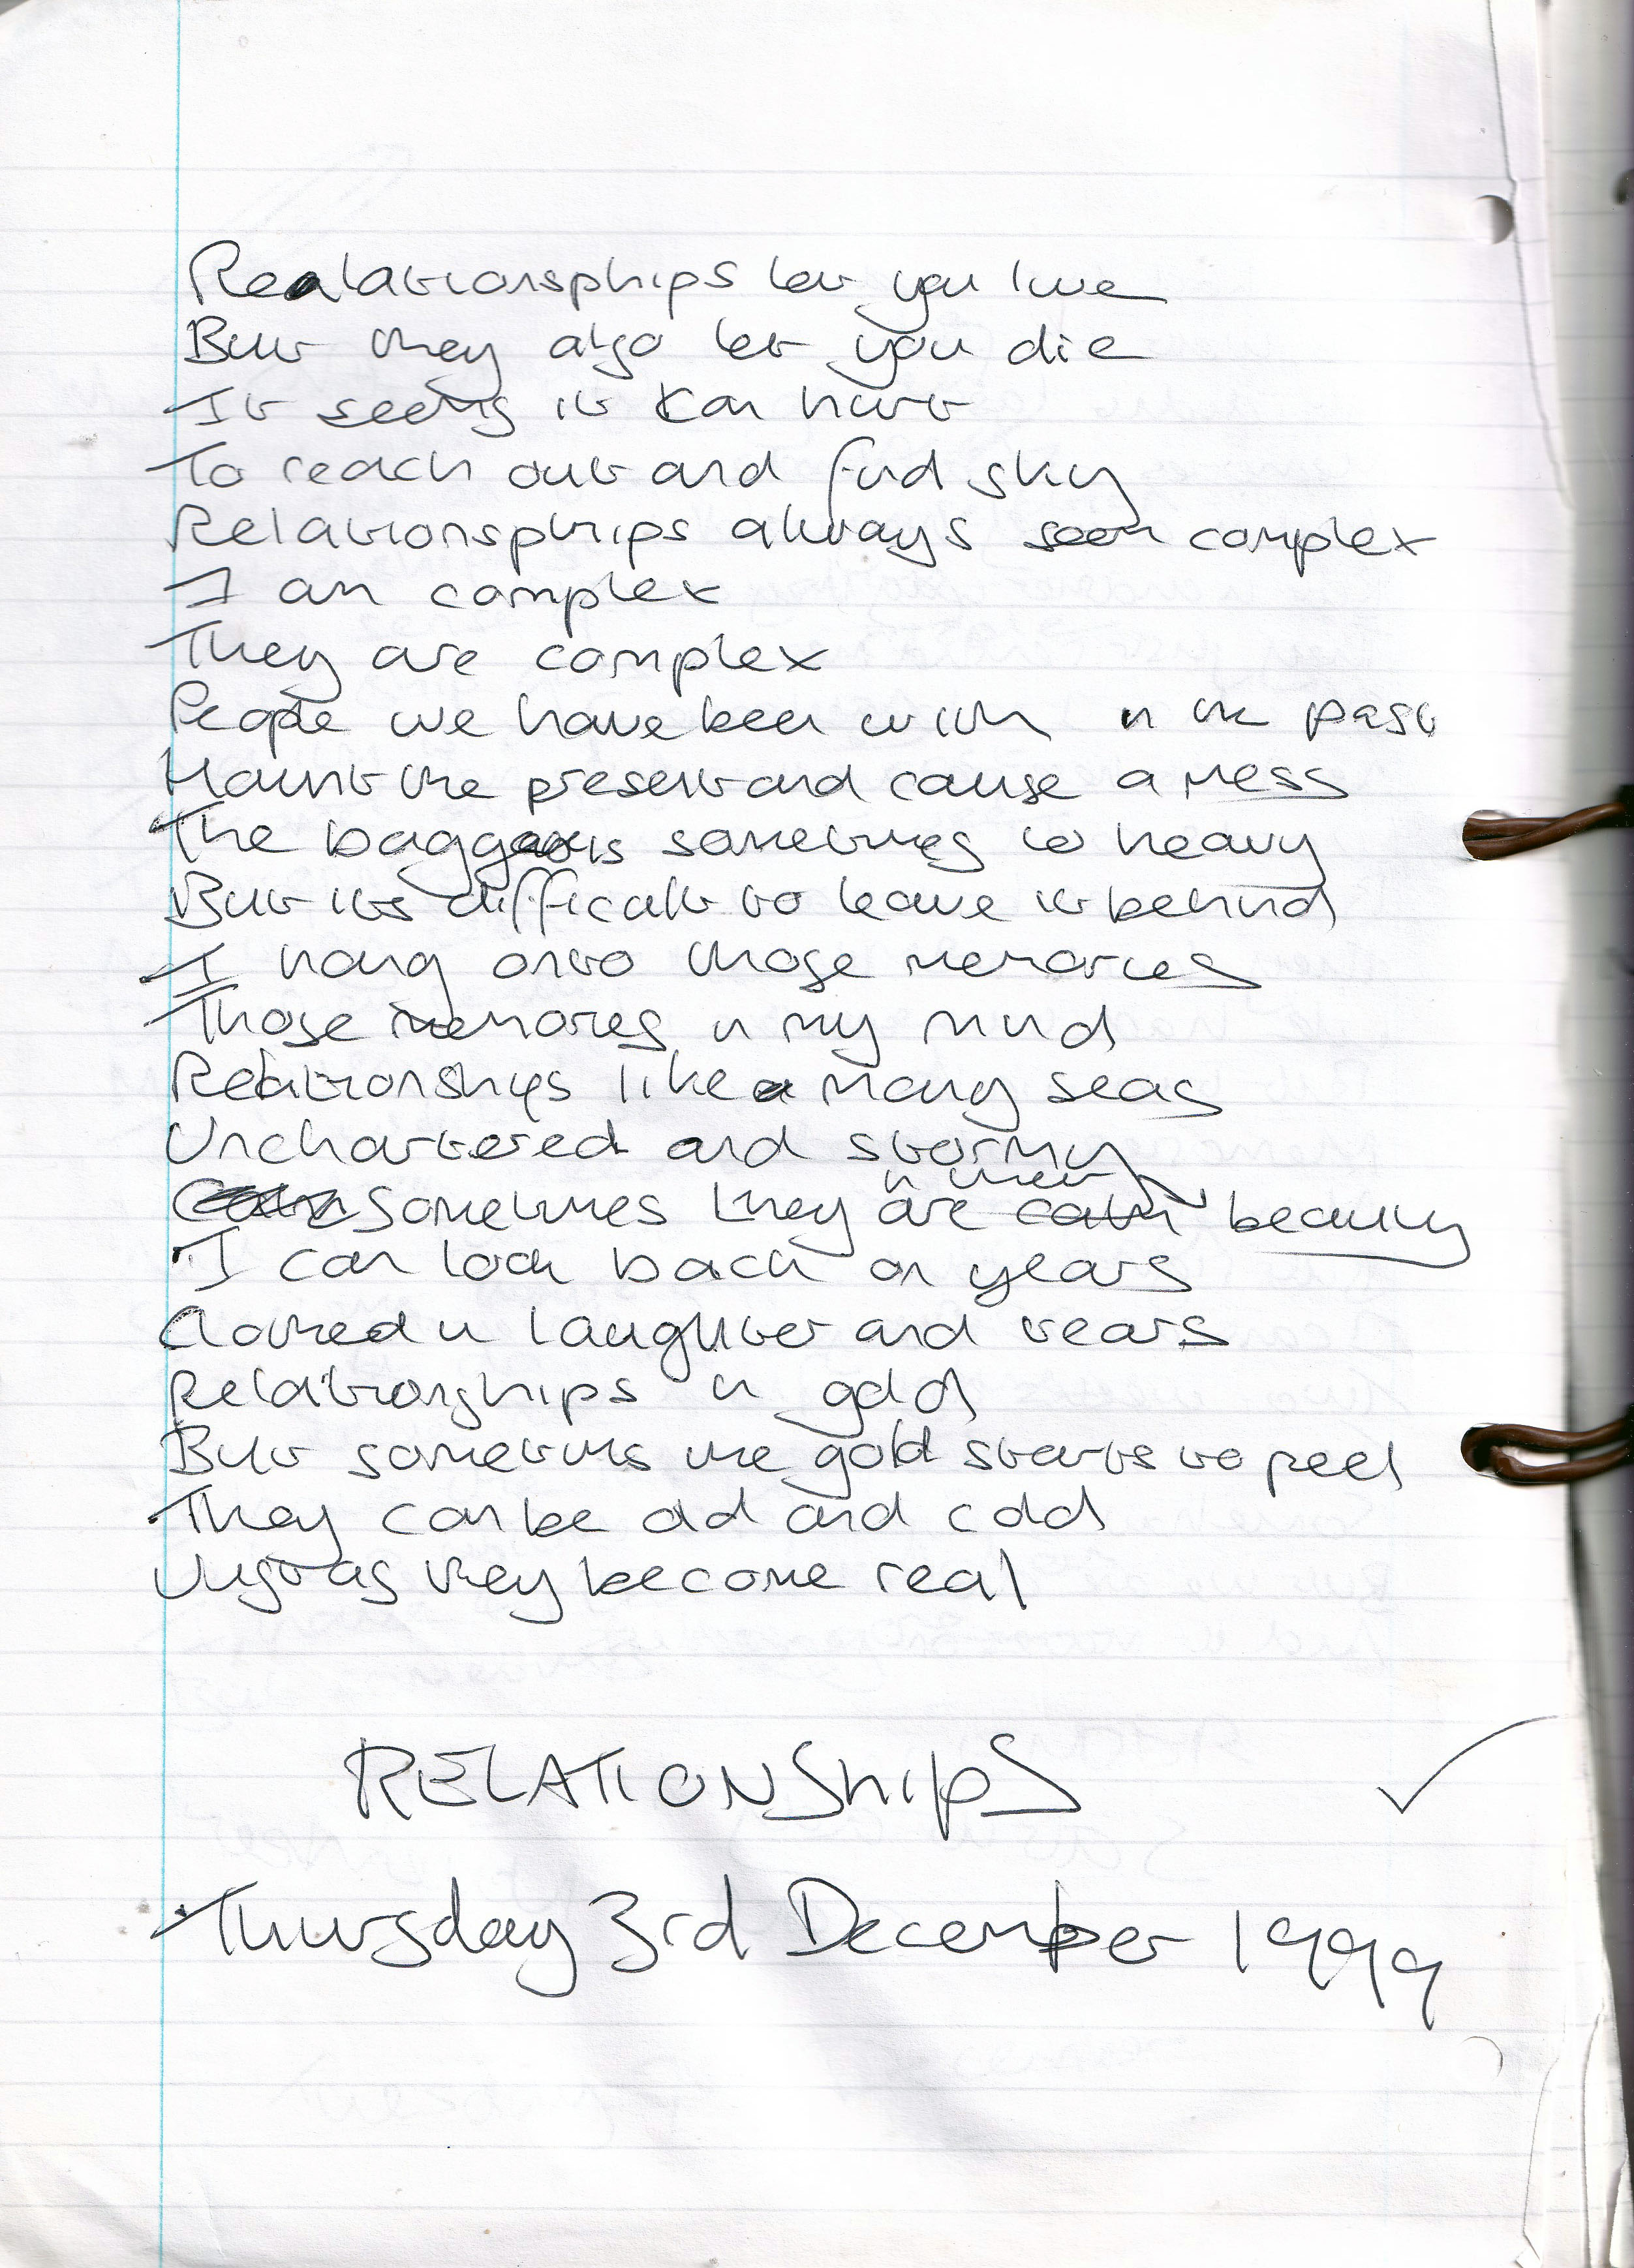 Realationsphips let you live
But they also let you die
It seems it can hurt
To reach out and find sky
Relationsphips always seem complex
I am complex
They are complex
People we have been with in the past
Haunt the present and cause a mess
The baggage is sometimes to heavy
But its difficult to leave it behind
I hang onto those memories
Those memories in my mind
Relationships like many seas
Unchartered and stormy
Sometimes they are calm in their beauty
I can look back on years
Clothed in laughter and tears
Relationships in gold
But sometimes the gold starts to peel
They can be old and cold
Just as they become real
RELATIONShipS
Thursday 3rd December 1999